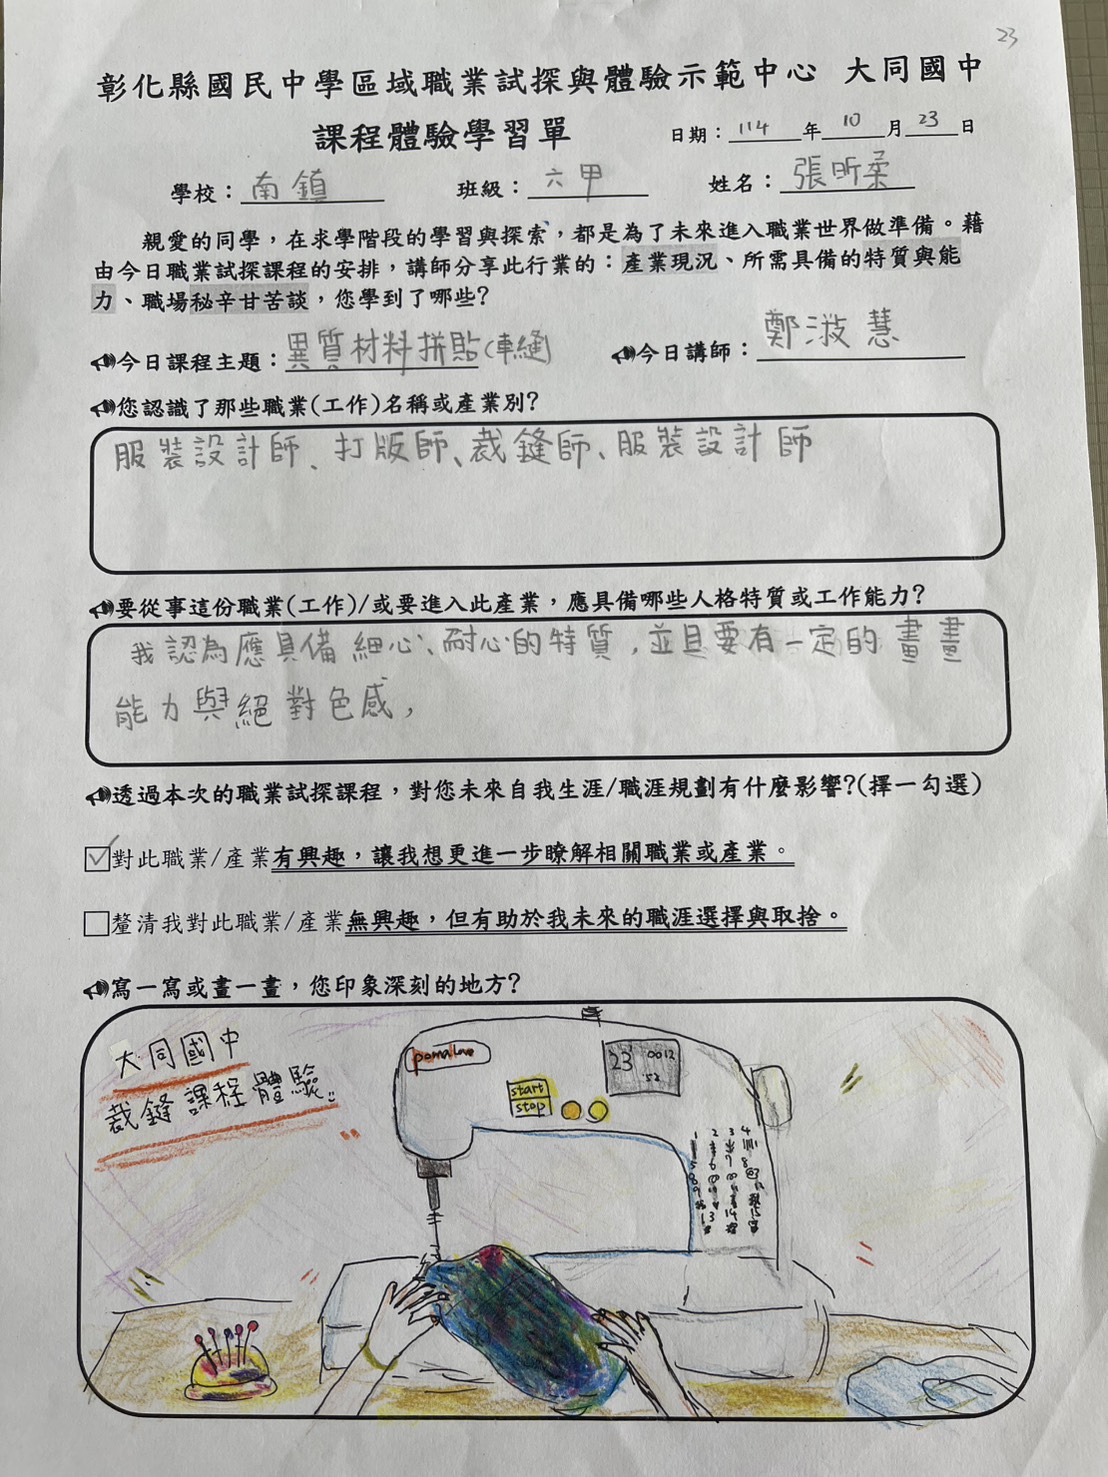 23
彰化縣國民中學區域職業試探與體驗示範中心 大同國中
課程體驗學習單 日期：114年10月23日
學校：南鎮 班級：六甲 姓名：張昕柔
親愛的同學，在求學階段的學習與探索，都是為了未來進入職業世界做準備。藉
由今日職業試探課程的安排，講師分享此行業的：產業現況、所需具備的特質與能
力、職場秘辛甘苦談，您學到了哪些?
今日課程主題：異質材料拼貼(車縫) 今日講師：鄭淑慧
您認識了那些職業(工作)名稱或產業別?
服裝設計師、打版師、裁縫師、服裝設計師
要從事這份職業(工作)/或要進入此產業，應具備哪些人格特質或工作能力?
我認為應具備細心、耐心的特質，並且要有一定的畫畫
能力與絕對色感，
透過本次的職業試探課程，對您未來自我生涯/職涯規劃有什麼影響?(擇一勾選)
☑對此職業/產業有興趣，讓我想更進一步瞭解相關職業或產業。
☐釐清我對此職業/產業無興趣，但有助於我未來的職涯選擇與取捨。
寫一寫或畫一畫，您印象深刻的地方?
大同國中
裁縫課程體驗
23 0012
52
start
stop